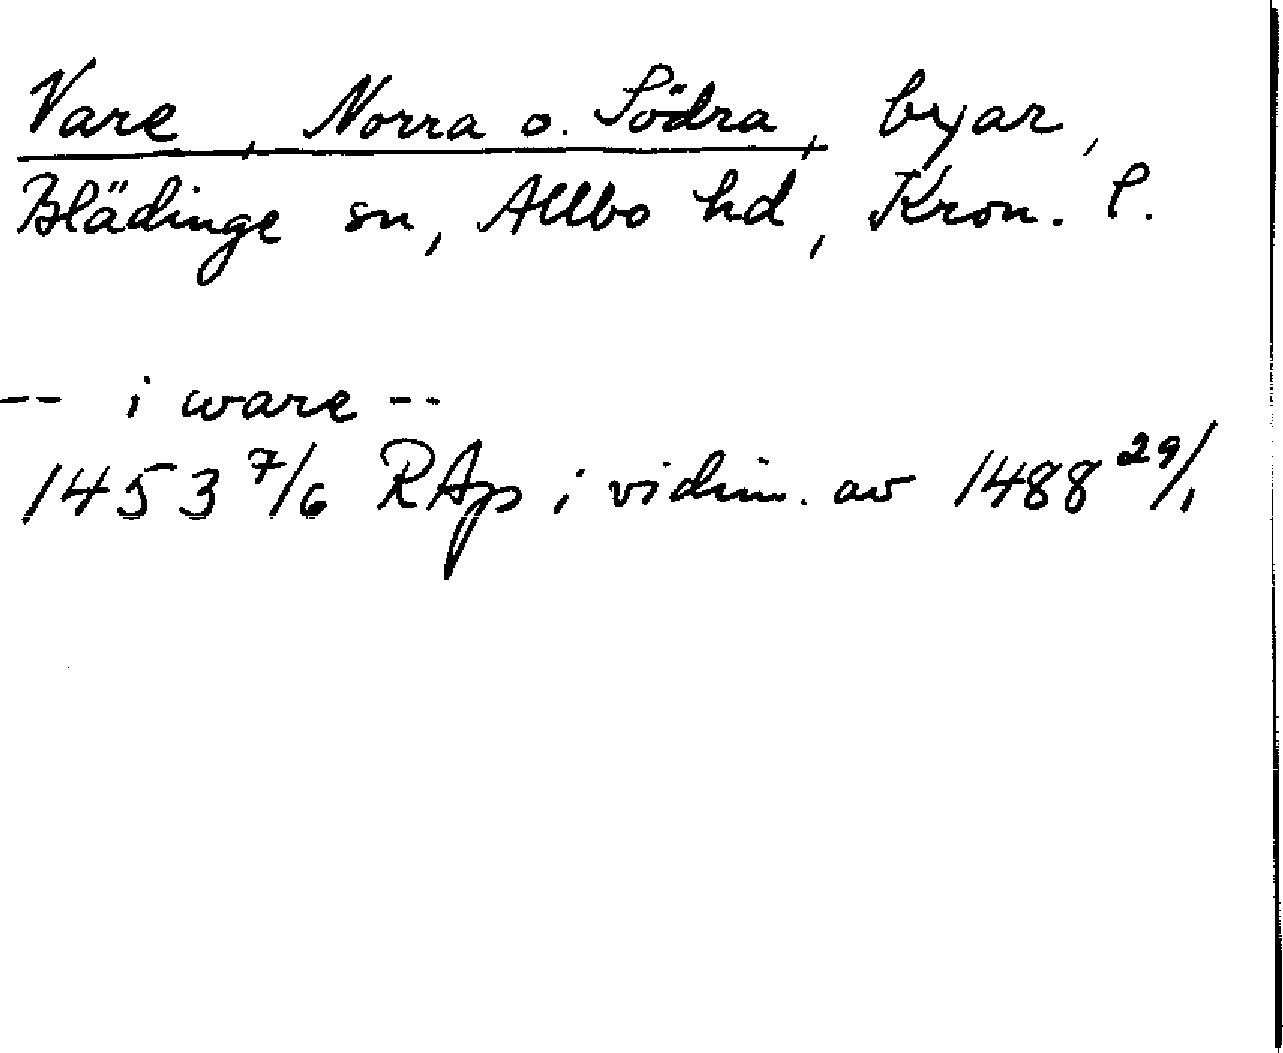 Vare, Norra o. Södra, byar,
Blädinge sn, Allbo hd, Kron. l.
-- i ware --
1453 7/6 RAp i vidim. av 1488 29/1